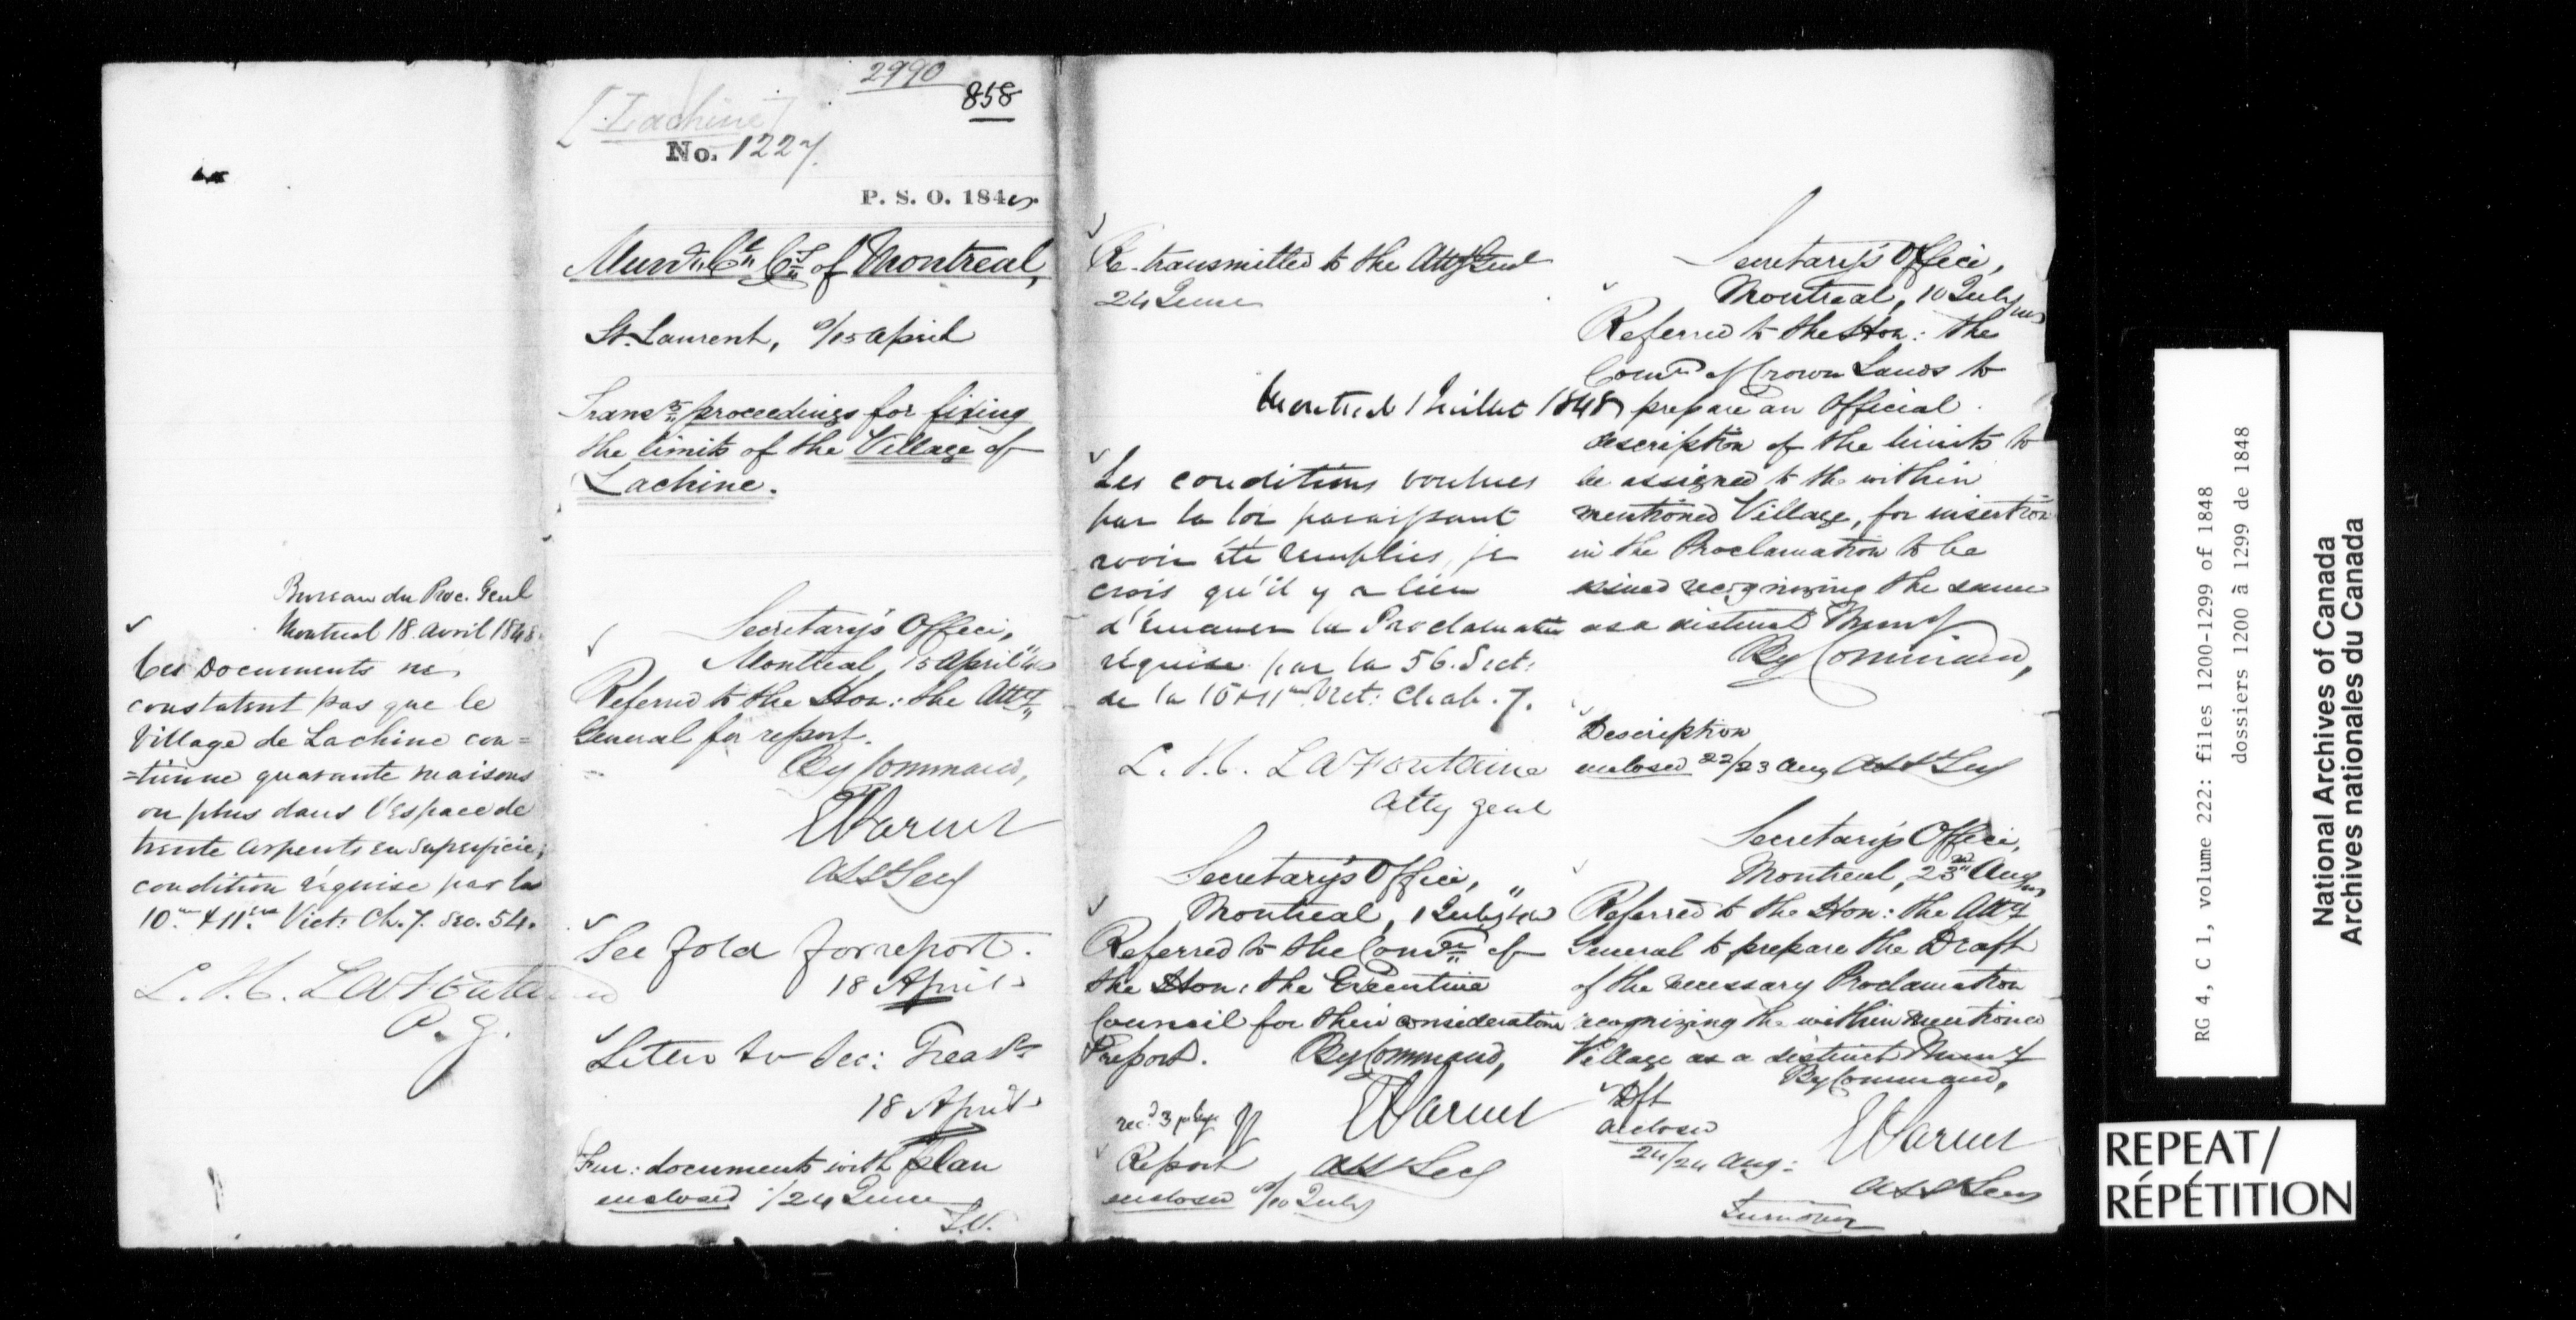 Bureau du Proc. Genl
Montreal 18. avril 1848.
Ces Documents ne
constatent pas que le
Village de Lachine con=
=tienne quarante maisons
ou plus dans l'espace de
trente arpents en superficie,
condition réquise par la
10.me & 11.eme Vict: Ch. 7. Sec. 54.
L. H. LaFontaine
A. G.
2990
858
[Lachine]
No. 1227.
P. S. O. 184
of Montreal,
St. Laurent, 15 April
proceedings for fixing
the limits of the Village of
Lachine.
Secretary's Office,
Montreal, 15 April
Referred to the Hon: the Atty
General for report.
By Command,
Ass Secy
See fold for report.
18 April
Letter to Sec: Treasr
18 April
Fur: documents with plan
enclosed /24 June
Re-transmitted to the Atty Genl
24 June
Montreal 1 Juillet 1848
Les conditions voulues
par la loi paraissant
avoir été remplies, je
crois qu'il y a lieu
d'émaner la Proclamation
réquise par la 56. Sect:
de la 10 & 11me Vict: Chap. 7.
L. H. LaFontaine
Atty Genl
Secretary's Office,
Montreal, 1 July
Referred to the of
the Hon: the Executive
Council for their consideration
& report. By Command,
Ass Secy
Report
enclosed /10 July
Secretary's Office,
Montreal, 10 July
Referred to the Hon: the
of Crown Lands to
prepare an Official
description of the limits to
be assigned to the within
mentioned Village, for insertion
in the Proclamation to be
issued recognizing the same
as a distinct Muny
By Command,
Description
enclosed 22/23 Aug Ass Secy
Secretary's Office,
Montreal, 23rd Aug
Referred to the Hon: the Atty
General to prepare the Draft
of the necessary Proclamation
recognizing the within mentioned
Village as a distinct Muny
By Command,
Dft
enclosed
24/24 Aug:
Ass Secy
Turnover
RG 4, C 1, volume 222: files 1200-1299 of 1848
dossiers 1200 à 1299 de 1848
National Archives of Canada
Archives nationales du Canada
REPEAT/
RÉPÉTITION